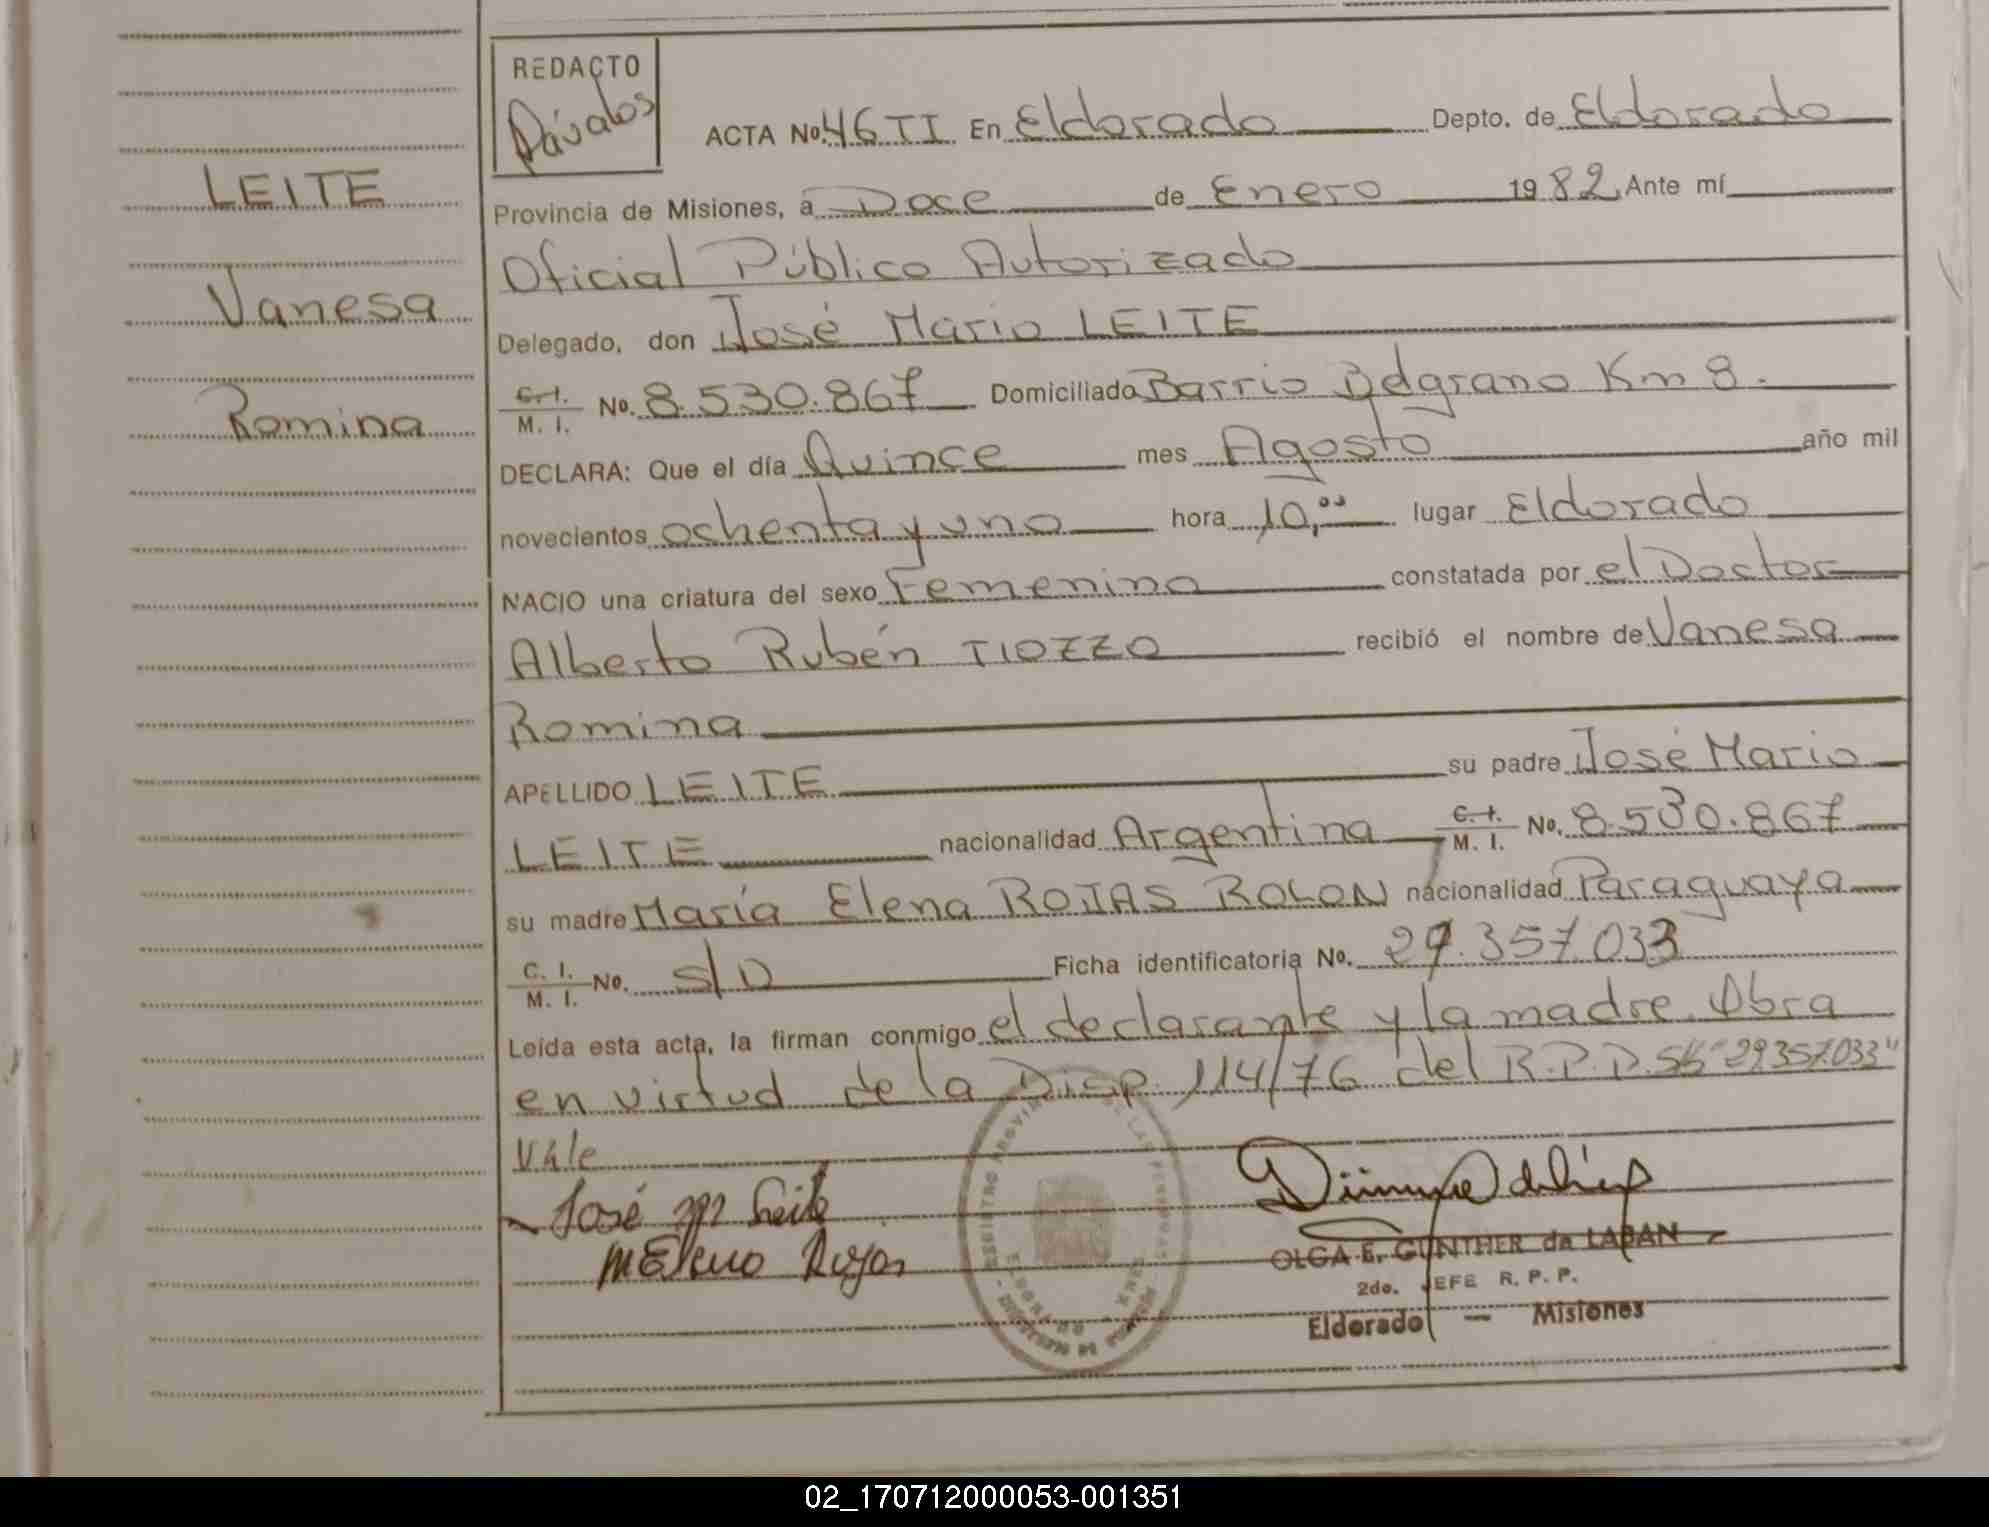 REDACTO
Dávalos
ACTA No. 46 TI En Eldorado Depto. de Eldorado
Provincia de Misiones, a Doce de Enero 1982 Ante mí
Oficial Público Autorizado
Delegado, don José Mario LEITE
C. I. M. I. No. 8.530.867 Domiciliado Barrio Belgrano Km 8.
DECLARA: Que el día Quince mes Agosto año mil
novecientos ochenta y uno hora 10,00 lugar Eldorado
NACIO una criatura del sexo Femenino constatada por el Doctor
Alberto Rubén TIOZZO recibió el nombre de Vanesa
Romina
APELLIDO LEITE su padre José Mario
LEITE nacionalidad Argentina C. I. M. I. No. 8.530.867
su madre María Elena ROJAS ROLON nacionalidad Paraguaya
C. I. M. I. No. S/D Ficha identificatoria No. 29.357.033
Leída esta acta, la firman conmigo el declarante y la madre. Obra
en virtud de la Disp. 114/76 del R.P.P. "29.357.033"
Vale
José M Leite
MElena Rojas
OLGA E. GUNTHER de LABAN
2do. JEFE R. P. P.
Eldorado — Misiones
LEITE
Vanesa
Romina
REGISTRO PROVINCIAL DE LAS PERSONAS
ELDORADO
02_170712000053-001351